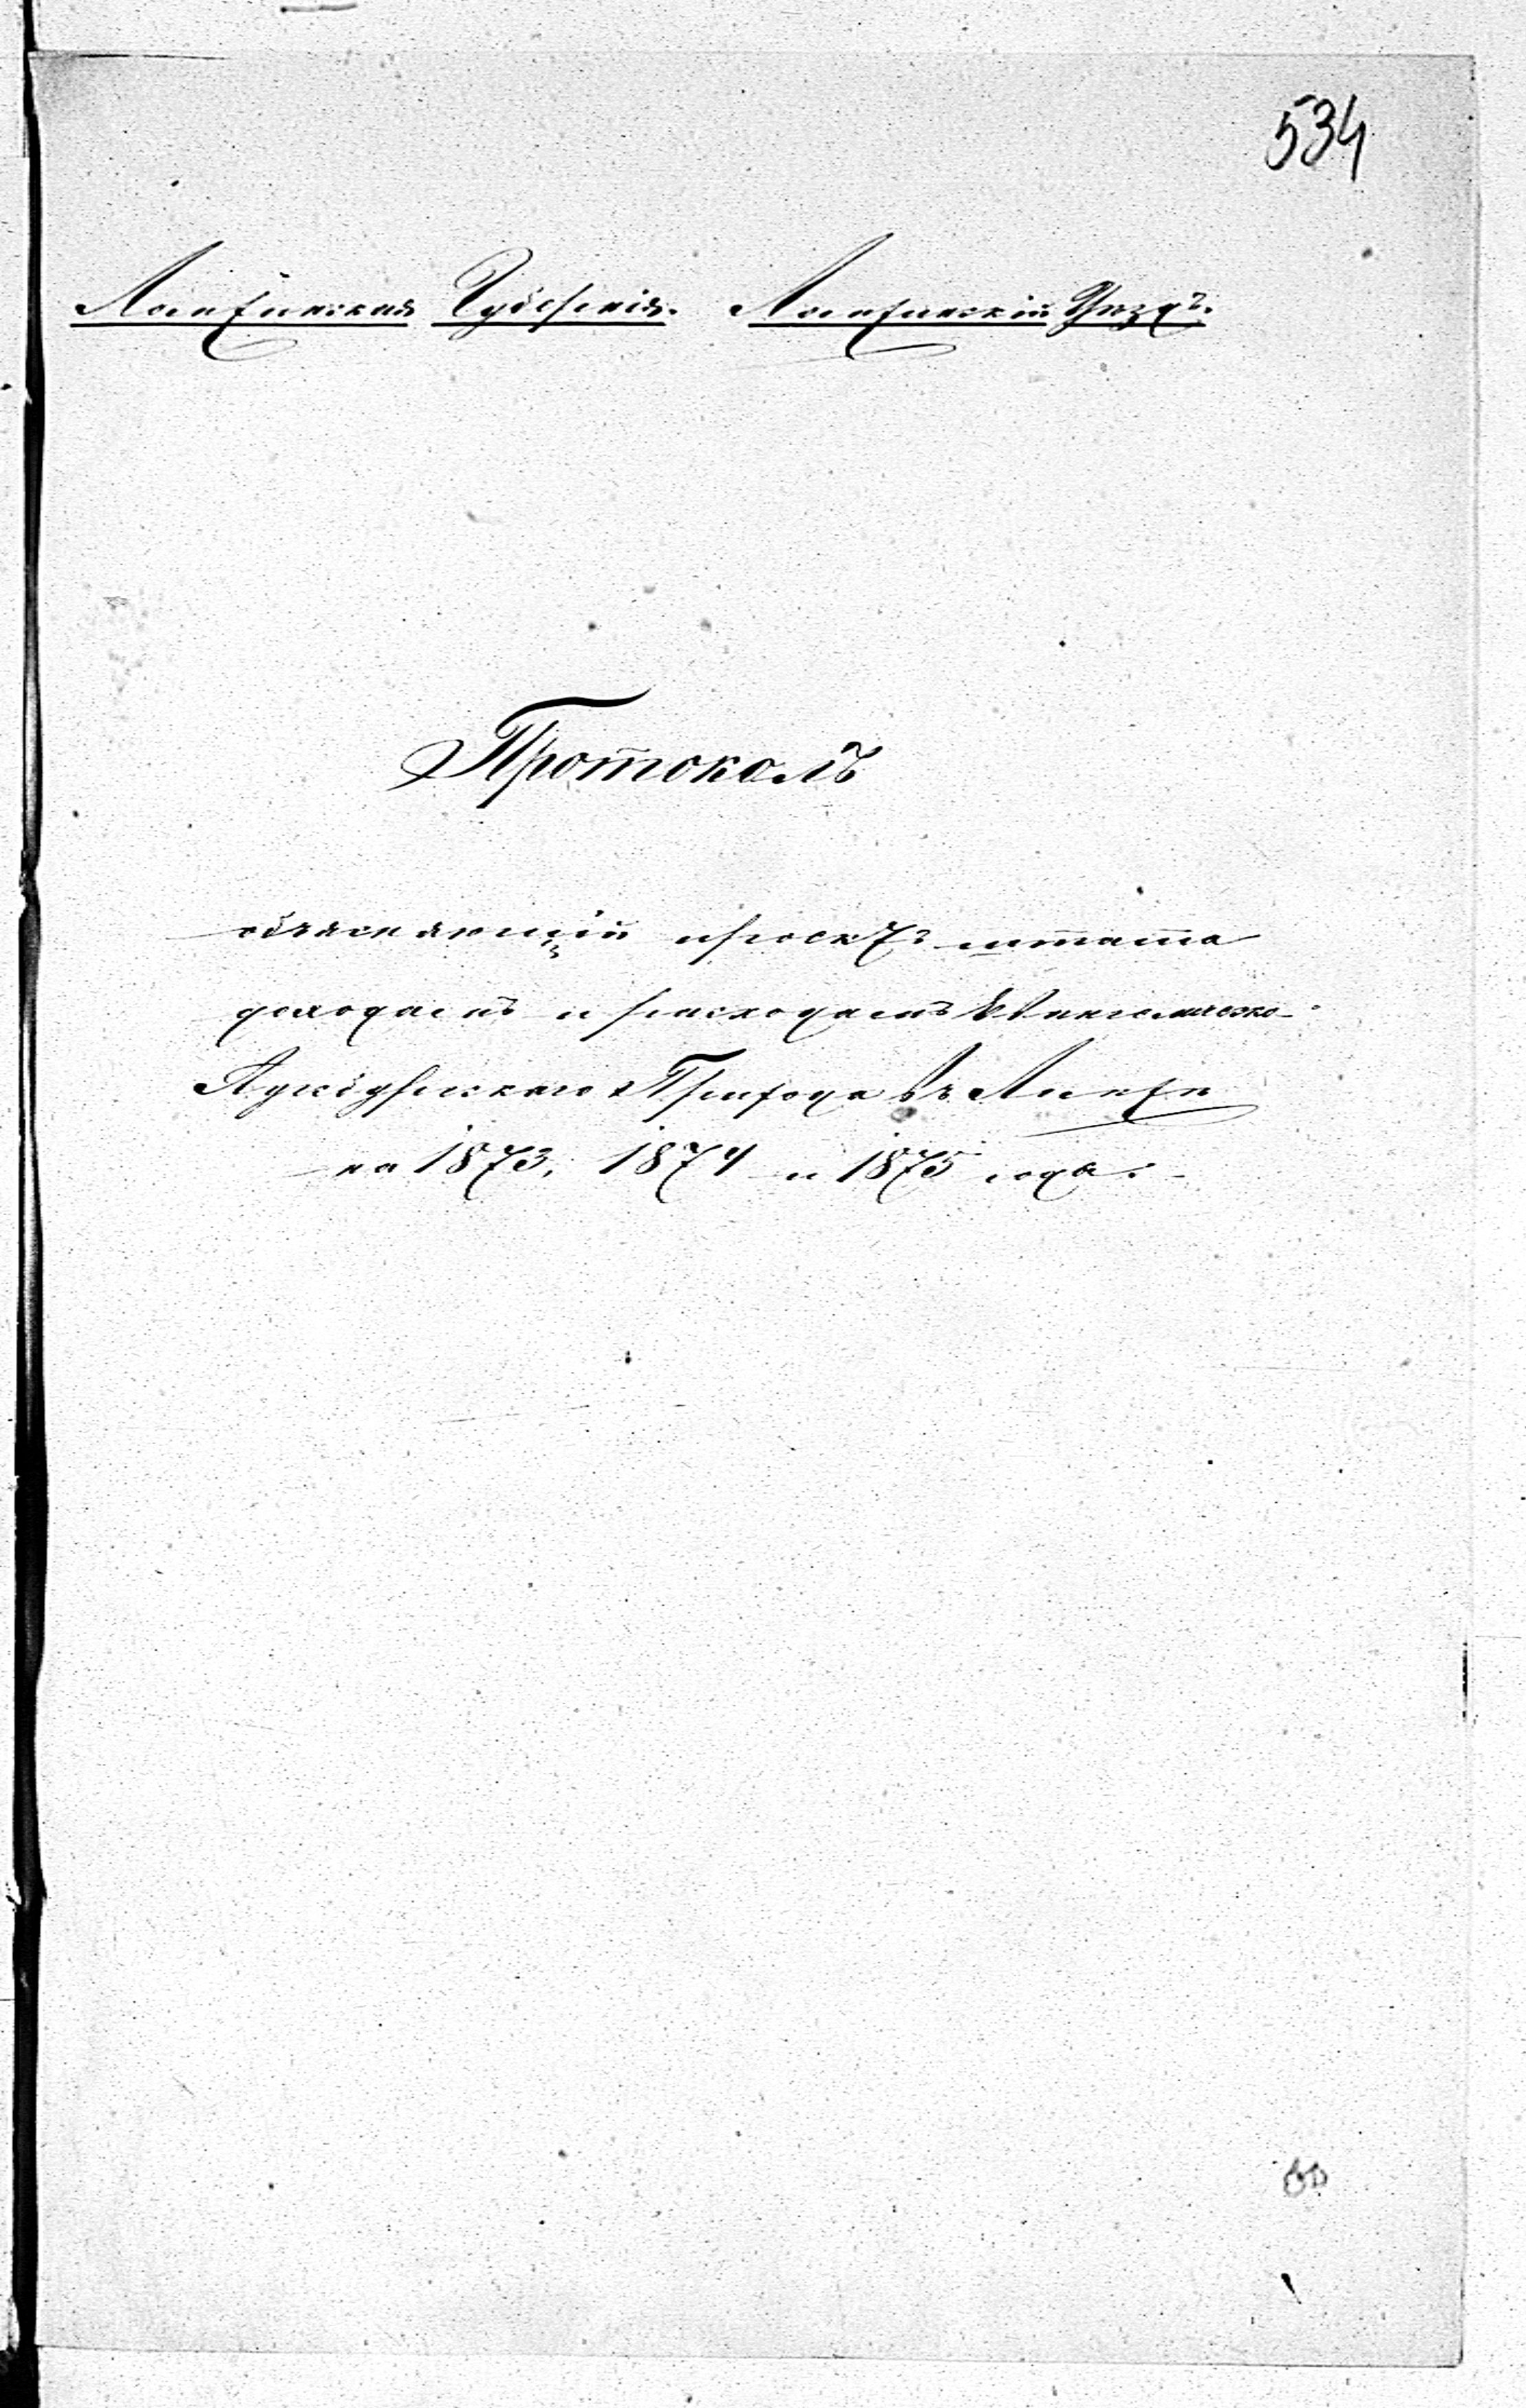 534
Ломжинская Губернія. Ломжинскій Уѣздъ.
Протоколъ
объясняющій проектъ штата
доходамъ и расходамъ Евангелическо-
Аугсбургскаго Прихода въ Ломжѣ
на 1873, 1874 и 1875 годы.-